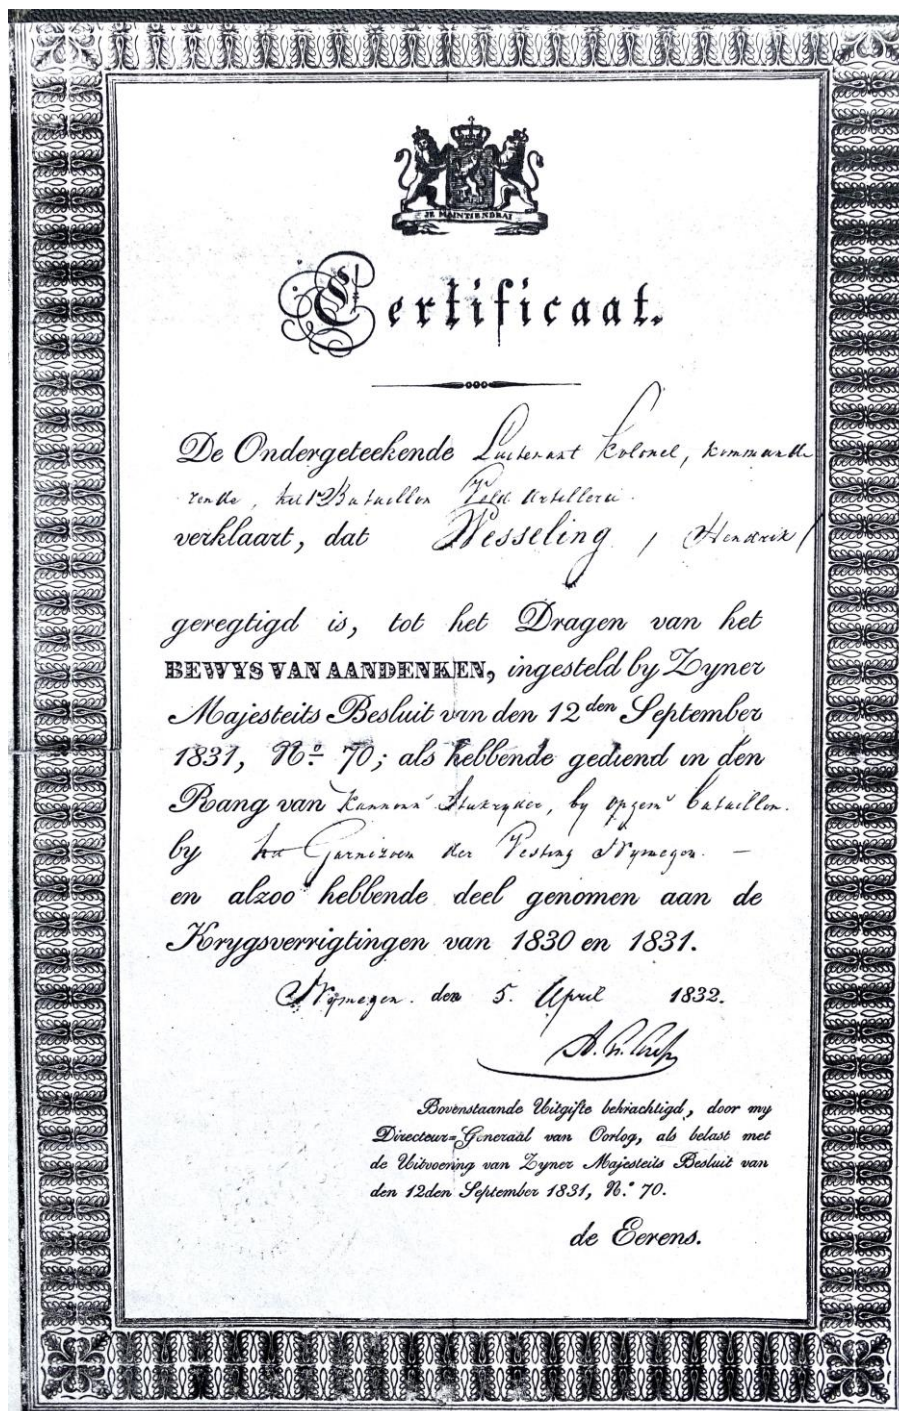 JE MAINTIENDRAI
Certificaat.
De Ondergeteekende Luitenant Kolonel, kommande
rende, het 1e Bataillon Veld Artillerie.
verklaart, dat Wesseling, / Hendrik /
geregtigd is, tot het Dragen van het
BEWYS VAN AANDENKEN, ingesteld by Zyner
Majesteits Besluit van den 12den September
1831, No. 70; als hebbende gediend in den
Rang van Kannonr Stukryder, by opgemt bataillon.
by het Garnizoen der Vesting Nymegen. —
en alzoo hebbende deel genomen aan de
Krygsverrigtingen van 1830 en 1831.
Nijmegen. den 5. April 1832.
Bovenstaande Uitgifte bekrachtigd, door my
Directeur=Generaal van Oorlog, als belast met
de Uitvoering van Zyner Majesteits Besluit van
den 12den September 1831, No. 70.
de Eerens.